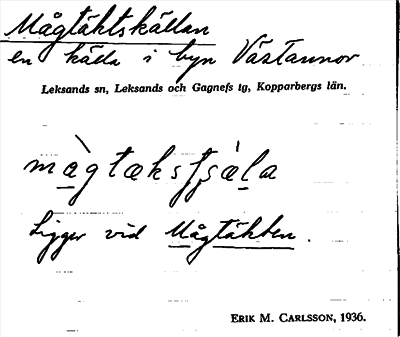 Mågtäktskällan
en källa i byn Västannor
Leksands sn, Leksands och Gagnefs tg, Kopparbergs län.
màgtækstʃæ̀la
Ligger vid Mågtäkten.
ERIK M. CARLSSON, 1936.